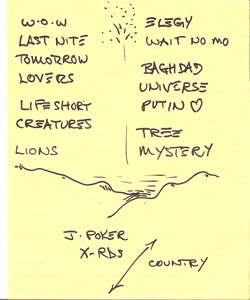 W.O.W
LAST NITE
TOMORROW
LOVERS
LIFE SHORT
CREATURES
LIONS
ELEGY
WAIT NO MO
BAGHDAD
UNIVERSE
PUTIN ♡
TREE
MYSTERY
J. POKER
X-RDS
COUNTRY